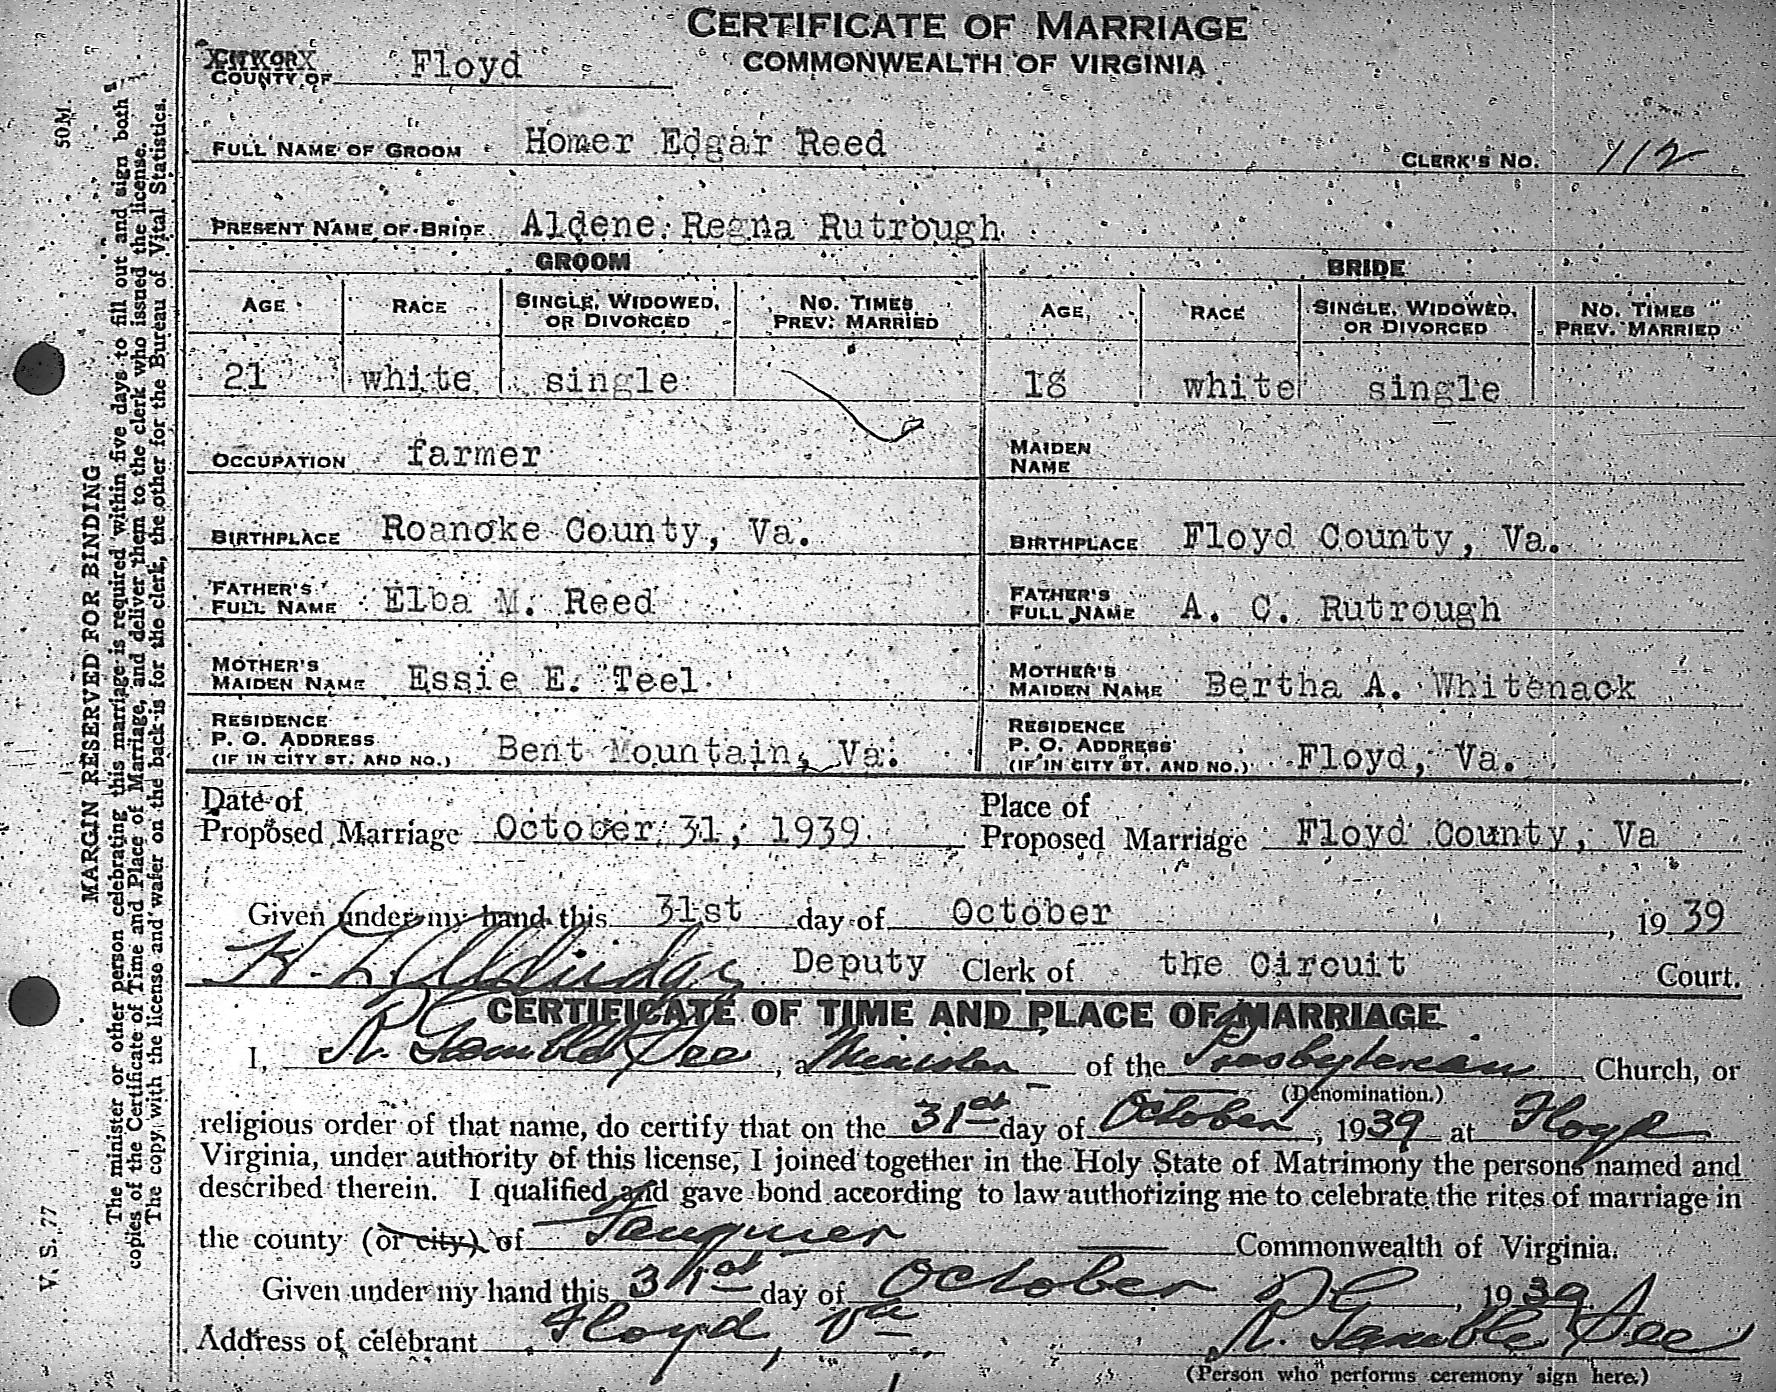 CERTIFICATE OF MARRIAGE
COMMONWEALTH OF VIRGINIA
COUNTY OF Floyd
FULL NAME OF GROOM Homer Edgar Reed CLERK'S NO. 112
PRESENT NAME OF BRIDE Aldene Regna Rutrough
GROOM BRIDE
AGE RACE SINGLE, WIDOWED, OR DIVORCED NO. TIMES PREV. MARRIED AGE RACE SINGLE, WIDOWED, OR DIVORCED NO. TIMES PREV. MARRIED
21 white single 18 white single
OCCUPATION farmer MAIDEN NAME
BIRTHPLACE Roanoke County, Va. BIRTHPLACE Floyd County, Va.
FATHER'S FULL NAME Elba M. Reed FATHER'S FULL NAME A. C. Rutrough
MOTHER'S MAIDEN NAME Essie E. Teel MOTHER'S MAIDEN NAME Bertha A. Whitenack
RESIDENCE P. O. ADDRESS (IF IN CITY ST. AND NO.) Bent Mountain, Va. RESIDENCE P. O. ADDRESS (IF IN CITY ST. AND NO.) Floyd, Va.
Date of Proposed Marriage October 31, 1939. Place of Proposed Marriage Floyd County, Va
Given under my hand this 31st day of October, 1939
Deputy Clerk of the Circuit Court.
CERTIFICATE OF TIME AND PLACE OF MARRIAGE
I, R. Gamble See, a Minister of the Presbyterian Church, or
(Denomination.)
religious order of that name, do certify that on the 31st day of October, 1939 at Floyd
Virginia, under authority of this license, I joined together in the Holy State of Matrimony the persons named and
described therein. I qualified and gave bond according to law authorizing me to celebrate the rites of marriage in
the county (or city) of Fauquier Commonwealth of Virginia.
Given under my hand this 31st day of October, 1939
Address of celebrant Floyd, Va R. Gamble See
(Person who performs ceremony sign here.)
MARGIN RESERVED FOR BINDING
The minister or other person celebrating this marriage is required within five days to fill out and sign both
copies of the Certificate of Time and Place of Marriage, and deliver them to the clerk who issued the license.
The copy with the license and wafer on the back is for the clerk, the other for the Bureau of Vital Statistics.
V. S. 77
50M.